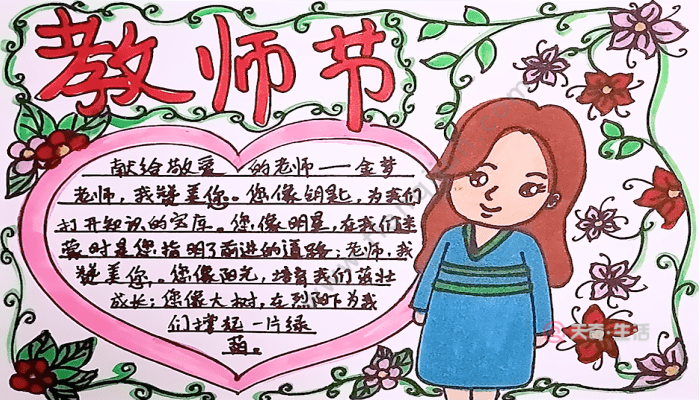 教师节
献给敬爱的老师——金梦
老师，我赞美您。您像钥匙，为我们
打开知识的宝库。您像明星，在我们迷
蒙时是您指明了前进的道路；老师，我
赞美您，。您像阳光，培育我们茁壮
成长；您像大树，在烈阳下为我
们撑起一片绿
茵。
天奇生活